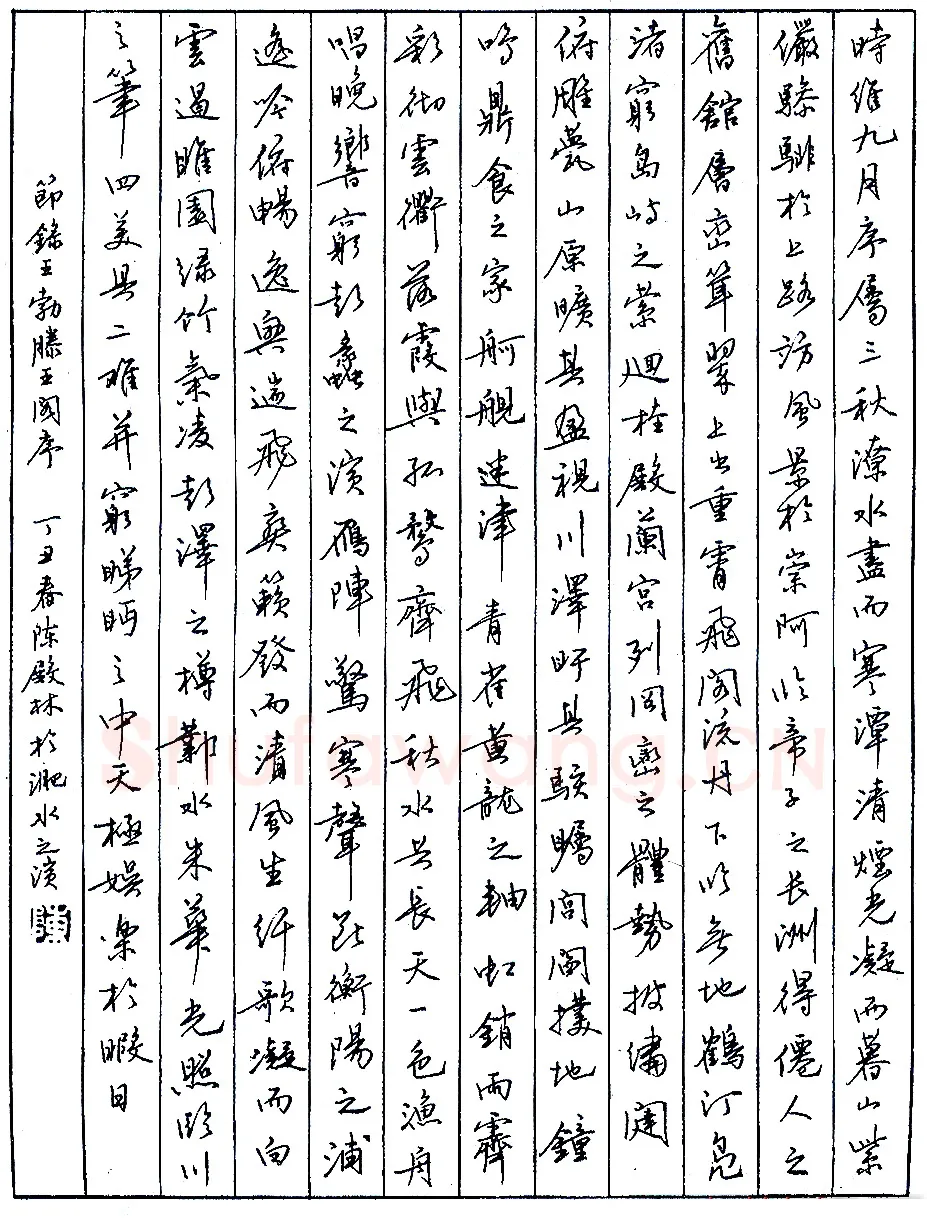 時維九月序屬三秋潦水盡而寒潭清煙光凝而暮山紫
儼驂騑於上路訪風景於崇阿臨帝子之長洲得僊人之
舊館層巒聳翠上出重霄飛閣流丹下臨無地鶴汀鳧
渚窮島嶼之縈迴桂殿蘭宮列岡巒之體勢披繡闥
俯雕甍山原曠其盈視川澤盱其駭矚閭閻撲地鐘
鳴鼎食之家舸艦迷津青雀黄龍之軸虹銷雨霽
彩徹雲衢落霞與孤鶩齊飛秋水共長天一色漁舟
唱晚響窮彭蠡之濱鴈陣驚寒聲斷衡陽之浦
遙吟俯暢逸興遄飛爽籟發而清風生纤歌凝而白
雲遏睢園绿竹氣凌彭澤之樽鄴水朱華光照臨川
之筆四美具二難并窮睇眄之中天極娱樂於暇日
節錄王勃滕王阁序 丁丑春陈殿林於淝水之濱
Shufawang.CN